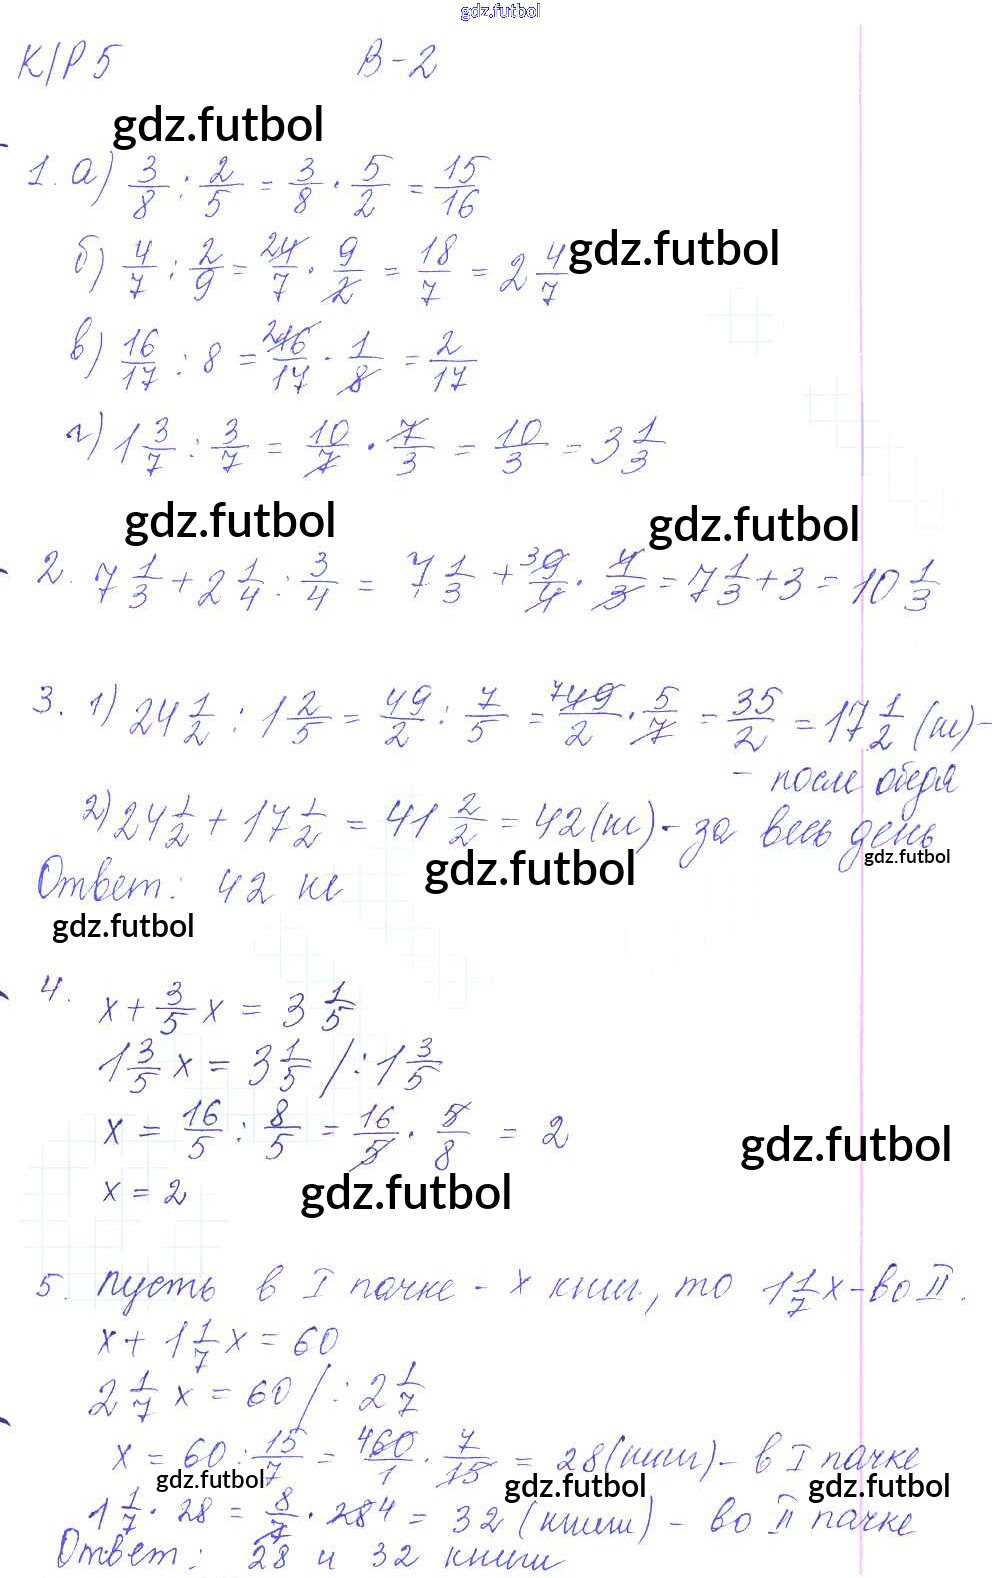 gdz.futbol
К/Р 5 В-2
gdz.futbol
1. а) 3/8 : 2/5 = 3/8 · 5/2 = 15/16
б) 4/7 : 2/9 = 24/7 · 9/2 = 18/7 = 2 4/7 gdz.futbol
в) 16/17 : 8 = 216/17 · 1/8 = 2/17
г) 1 3/7 : 3/7 = 10/7 · 7/3 = 10/3 = 3 1/3
gdz.futbol gdz.futbol
2. 7 1/3 + 2 1/4 : 3/4 = 7 1/3 + 39/4 · 4/3 = 7 1/3 + 3 = 10 1/3
3. 1) 24 1/2 : 1 2/5 = 49/2 : 7/5 = 749/2 · 5/7 = 35/2 = 17 1/2 (кг) -
- после обеда
2) 24 1/2 + 17 1/2 = 41 2/2 = 42 (кг) - за весь день
gdz.futbol gdz.futbol
Ответ: 42 кг
gdz.futbol
4. x + 3/5 x = 3 1/5
1 3/5 x = 3 1/5 / : 1 3/5
x = 16/5 : 8/5 = 16/5 · 5/8 = 2
gdz.futbol
x = 2 gdz.futbol
5. Пусть в I пачке - x книг, то 1 1/7 x - во II.
x + 1 1/7 x = 60
2 1/7 x = 60 / : 2 1/7
x = 60 : 15/7 = 460/1 · 7/15 = 28 (книг) - в I пачке
gdz.futbol gdz.futbol gdz.futbol
1 1/7 · 28 = 8/7 · 284 = 32 (книги) - во II пачке
Ответ: 28 и 32 книги